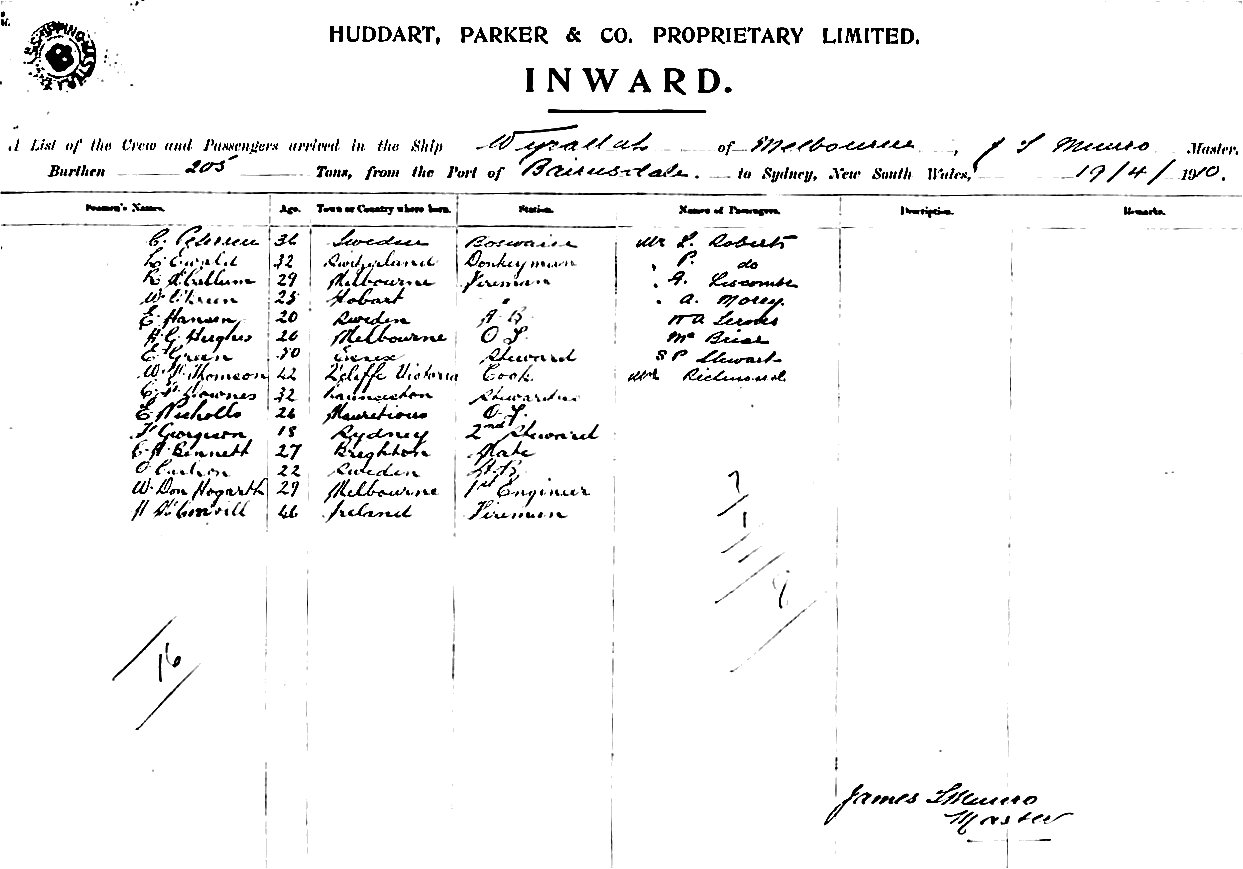 HUDDART, PARKER & CO. PROPRIETARY LIMITED.
INWARD.
A List of the Crew and Passengers arrived in the Ship Wyrallah of Melbourne, J S Munro Master,
Burthen 205 Tons, from the Port of Bairnsdale. to Sydney, New South Wales, 19/4/1910.
Seamen's Names. Age. Town or Country where born. Station. Names of Passengers. Description. Remarks.
C. Petersen 36 Sweden Boswain Mr L. Roberts
L. Ewald 32 Switzerland Donkeyman " P. do
29 Melbourne Fireman " A. Liscombe
25 Hobart " " A. Morey
E. Hansen 20 Sweden A B
H. G. Hughes 20 Melbourne O S
E Green Essex Steward S P Stewart
W. Thomson 42 Victoria Cook Richmond
Downes 32 Launceston Stewardess
E Nicholls 26 Mauretious O. S.
Georgeson 18 Sydney 2nd Steward
E. A. Bennett 27 Brighton Mate
O Carlson 22 Sweden A. B.
W. Don Hogarth 29 Melbourne 1st Engineer
46 Ireland Fireman
7
1
8
16
James S Munro
Master